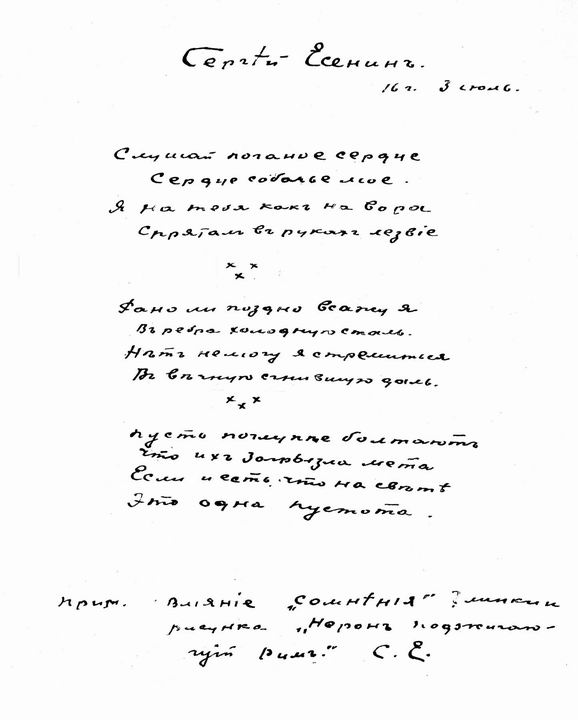 Сергѣй Есенинъ.
16 г. 3 июль.
Слушай поганое сердце
Сердце собачье мое.
Я на тебя какъ на вора
Спряталъ въ рукахъ лезвіе
× × ×
Рано ли поздно всажу я
Въ ребра холодную сталь.
Нѣтъ немогу я стремиться
Въ вѣчную сгнившую даль.
× × ×
Пусть поглупѣе болтаютъ
Что ихъ загрызла мета
Если и есть что на свѣтѣ
Это одна пустота.
Прим. Вліяніе „Сомнѣнія" Глинки и
рисунка „Неронъ поджигаю-
щій Римъ." С. Е.